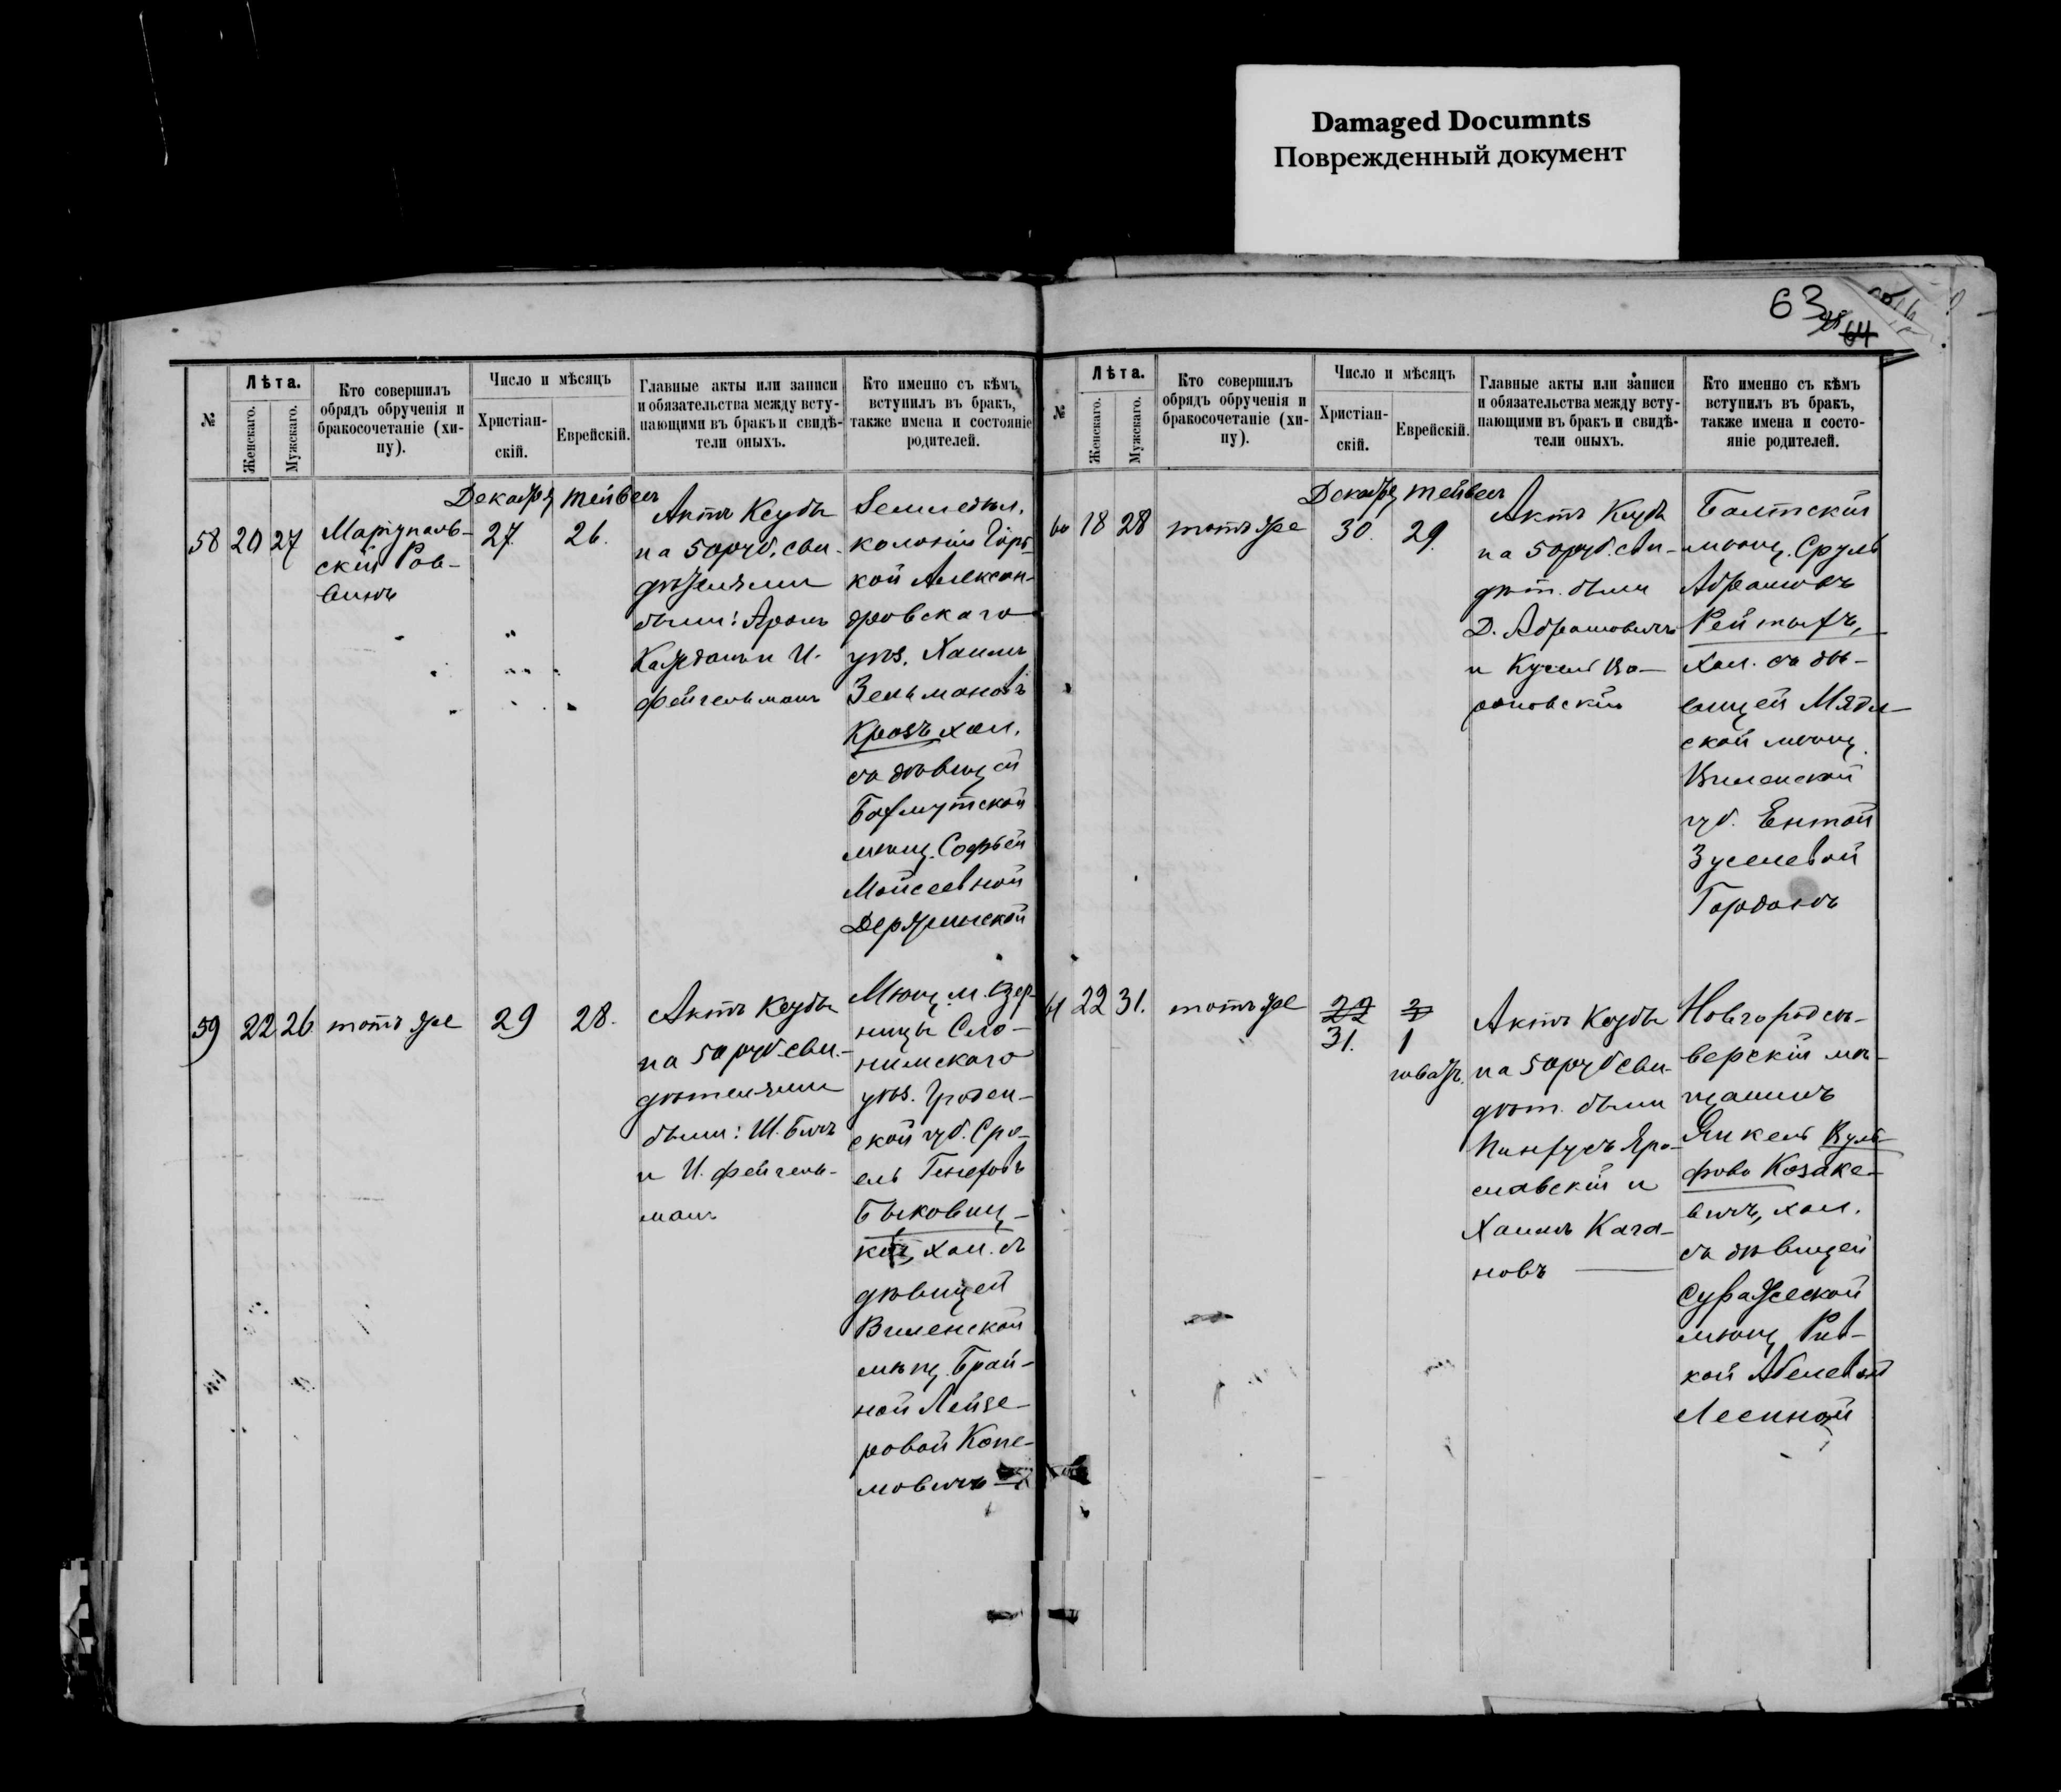 Damaged Documnts
Поврежденный документ
63
64
№
Лѣта.
Женскаго.
Мужскаго.
Кто совершилъ
обрядъ обрученія и
бракосочетаніе (хи-
пу).
Число и мѣсяцъ
Христіан-
скій.
Еврейскій.
Главные акты или записи
и обязательства между всту-
пающими въ бракъ и свидѣ-
тели оныхъ.
Кто именно съ кѣмъ
вступилъ въ бракъ,
также имена и состояніе
родителей.
Декабря Тейвесъ
58 20 27
Маріуполь-
скій Рав-
винъ
27. 26.
Актъ Ксубы
на 50 руб. сви-
дѣтелями
были: Аронъ
Каждонъ и И.
Фейгельманъ
Земледѣл.
колоніи Горь-
кой Алексан-
дровскаго
уѣз. Хаимъ
Зельмановъ
Кроэъ хол.
съ дѣвицей
Бахмутской
мѣщ. Софьей
Моисеевной
Держинской
59 22 26.
тотъ же
29 28.
Актъ Ксубы
на 50 руб. сви-
дѣтелями
были: Ш. Бичъ
и И. Фейгель-
манъ
Мѣщ. м. Езер-
ницы Сло-
нимскаго
уѣз. Гроден-
ской губ. Сро-
ель
Быковиц-
кій, хол. съ
дѣвицей
Виленской
мѣщ. Брай-
ной Лейзе-
ровой Копе-
ловичъ
№
Лѣта.
Женскаго.
Мужскаго.
Кто совершилъ
обрядъ обрученія и
бракосочетаніе (хи-
пу).
Число и мѣсяцъ
Христіан-
скій.
Еврейскій.
Главные акты или записи
и обязательства между всту-
пающими въ бракъ и свидѣ-
тели оныхъ.
Кто именно съ кѣмъ
вступилъ въ бракъ,
также имена и состо-
яніе родителей.
Декабря Тейвесъ
60 18 28
тотъ же
30. 29.
Актъ Ксубы
на 50 руб. сви-
дѣт. были
Д. Абрамовичъ
и Кусель Во-
роновскій
Балтскій
мѣщ. Сруль
Абрамовъ
Рейтыхъ,
хол. съ дѣ-
вицей Мядл-
ской мѣщ.
Виленской
губ. Ентой
Зуселевой
Гордонъ
61 22 31.
тотъ же
31. 1
Актъ Ксубы
на 50 руб. сви-
дѣт. были
Пинхусъ Яро-
славскій и
Хаимъ Кага-
новъ
Новгородсѣ-
верскій мѣ-
щанинъ
Янкель Вуль-
фовъ Козаке-
вичъ, хол.
съ дѣвицей
Суражской
мѣщ. Рив-
кой Абелевой
Лесиной